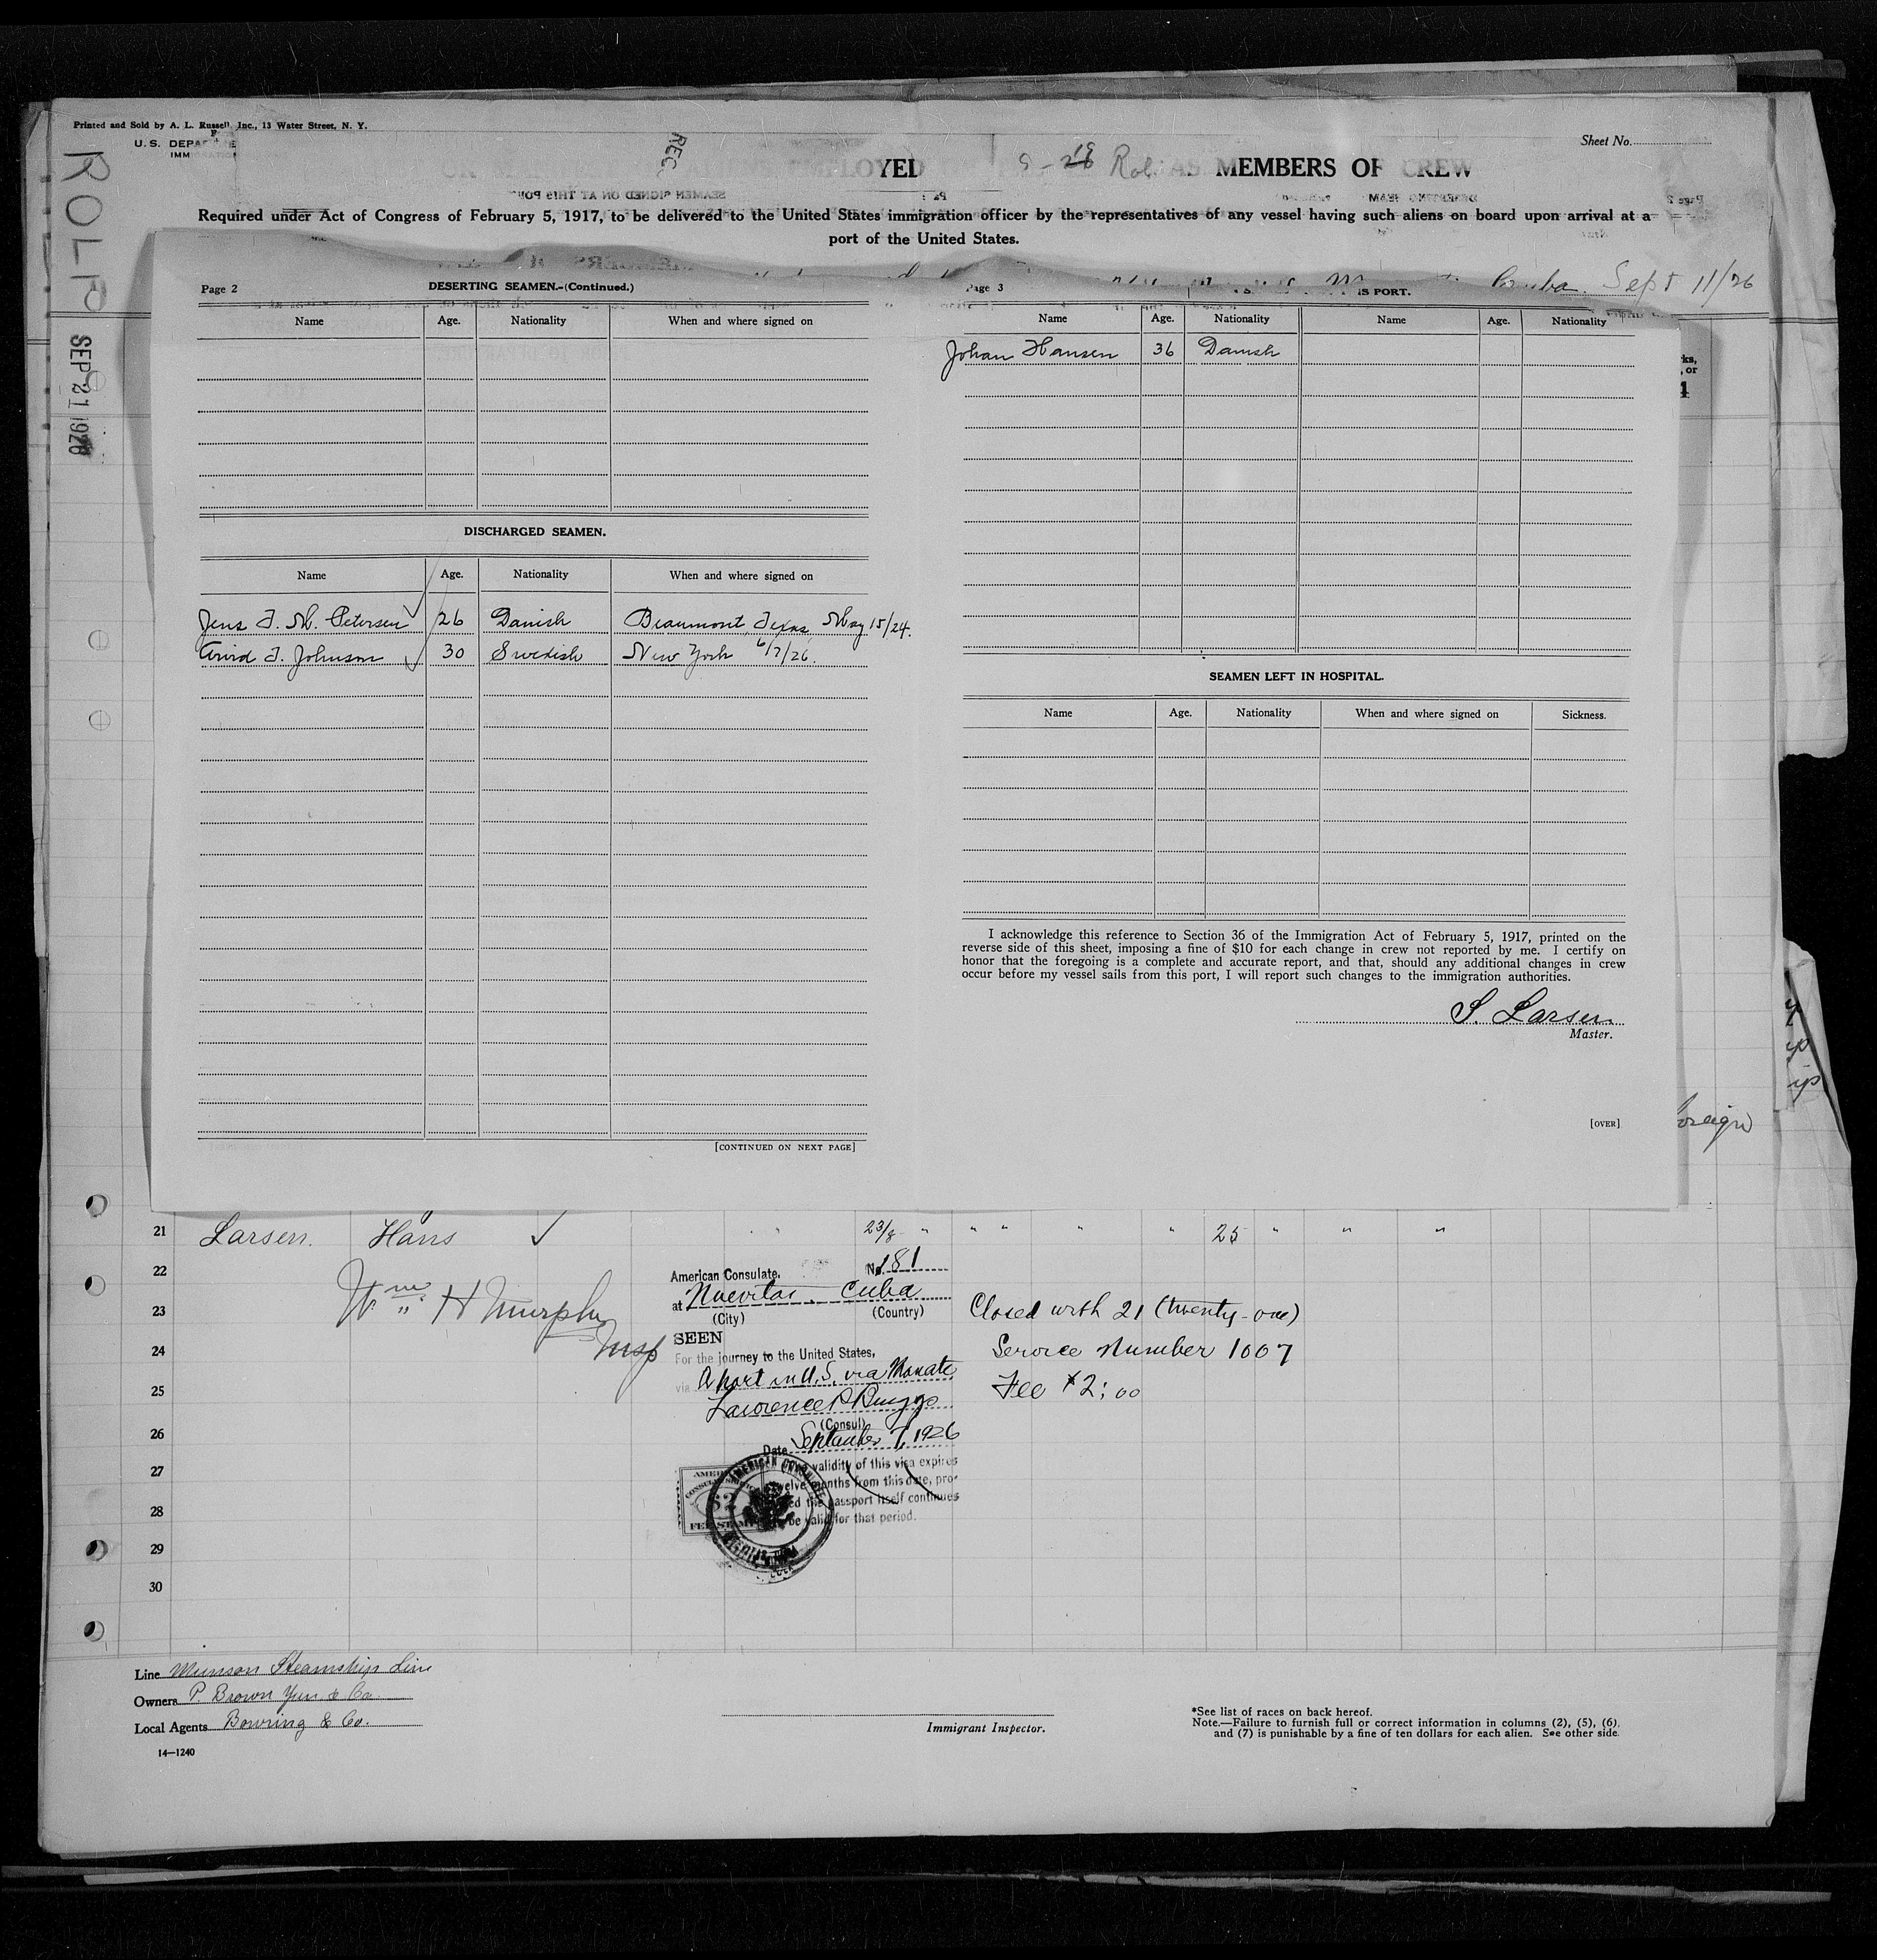 Printed and Sold by A. L. Russell, Inc., 13 Water Street, N. Y.
Sheet No.
MEMBERS OF CREW
Required under Act of Congress of February 5, 1917, to be delivered to the United States immigration officer by the representatives of any vessel having such aliens on board upon arrival at a
port of the United States.
ROLF
SEP 21 1926
Cuba Sept 11/26
Page 2
DESERTING SEAMEN.-(Continued.)
Name Age. Nationality When and where signed on
DISCHARGED SEAMEN.
Name Age. Nationality When and where signed on
Jens F. M. Petersen 26 Danish Beaumont, Texas, May 15/24.
Arvid F. Johnson 30 Swedish New York 6/7/26.
[CONTINUED ON NEXT PAGE]
Page 3
IS PORT.
Name Age. Nationality Name Age. Nationality
Johan Hansen 36 Danish
SEAMEN LEFT IN HOSPITAL.
Name Age. Nationality When and where signed on Sickness.
I acknowledge this reference to Section 36 of the Immigration Act of February 5, 1917, printed on the
reverse side of this sheet, imposing a fine of $10 for each change in crew not reported by me. I certify on
honor that the foregoing is a complete and accurate report, and that, should any additional changes in crew
occur before my vessel sails from this port, I will report such changes to the immigration authorities.
S. Larsen
Master.
[OVER]
21 Larsen. Hans 23/8 " " " " " 25 " " "
22
23
24
25
26
27
28
29
30
Wm. H Murphy
Insp
American Consulate, No. 181
at Nuevitas, Cuba
(City) (Country)
SEEN
For the journey to the United States,
via A port in U.S. via Manati
Lawrence P. Briggs
(Consul)
Date September 7, 1926
validity of this visa expires
twelve months from this date, pro-
the passport itself continues
be valid for that period.
Closed with 21 (twenty-one)
Service Number 1007
Fee $2.00
Line Munson Steamship Line
Owners P. Brown Jun. & Co.
Local Agents Bowring & Co.
14—1240
Immigrant Inspector.
*See list of races on back hereof.
Note.—Failure to furnish full or correct information in columns (2), (5), (6),
and (7) is punishable by a fine of ten dollars for each alien. See other side.